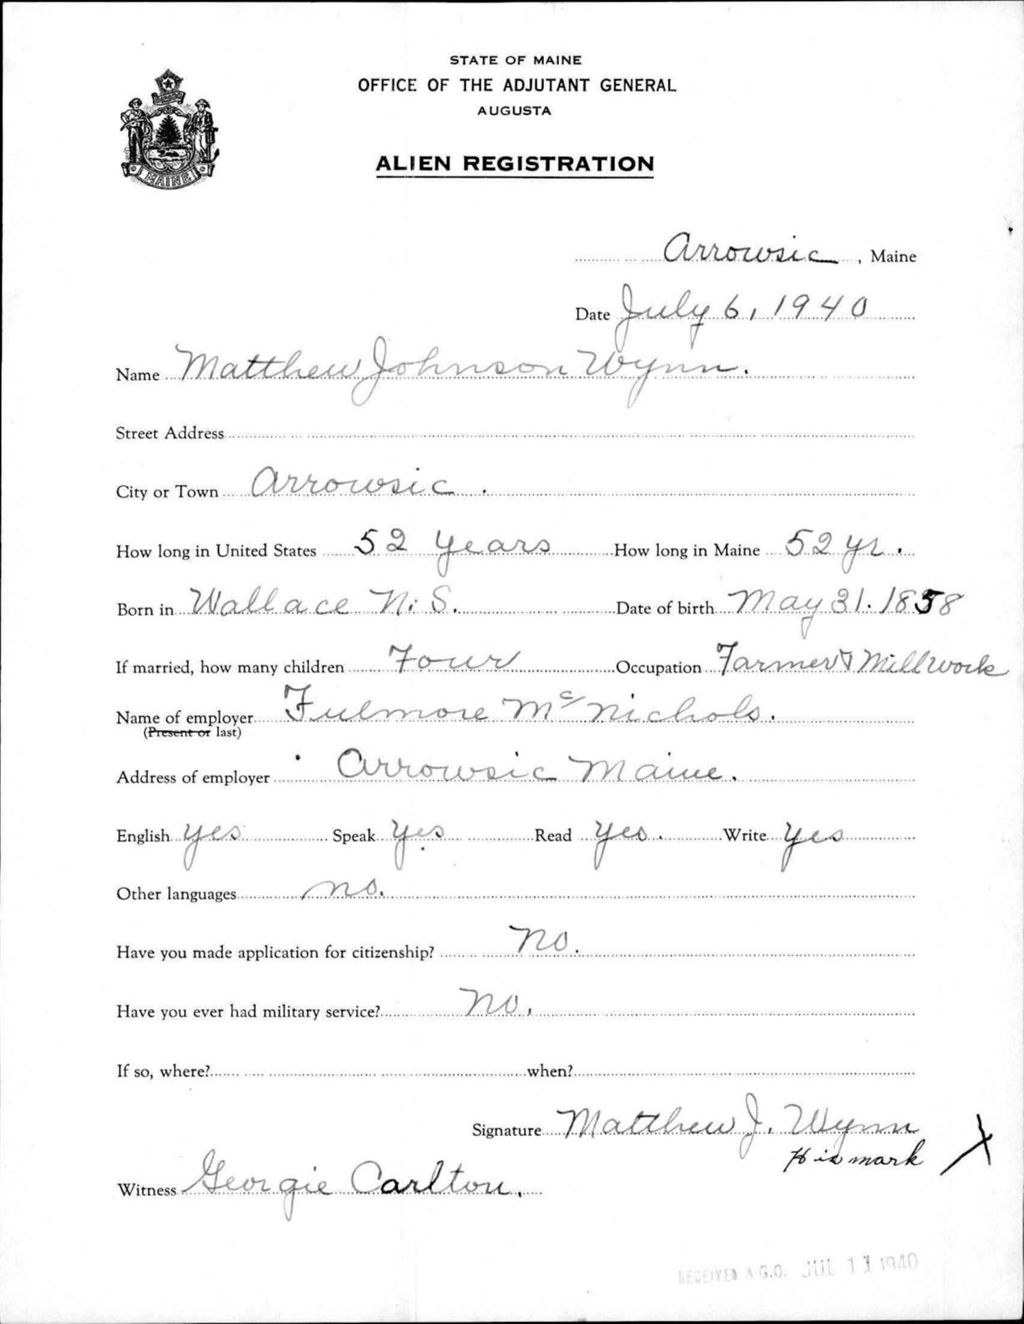 STATE OF MAINE
OFFICE OF THE ADJUTANT GENERAL
AUGUSTA
ALIEN REGISTRATION
MAINE
Arrowsic, Maine
Date July 6, 1940
Name Matthew Johnson Wynn.
Street Address
City or Town Arrowsic.
How long in United States 52 years How long in Maine 52 yr.
Born in Wallace N. S. Date of birth May 31. 1858
If married, how many children Four Occupation Farmer & Mill work
Name of employer Fulmore McNichols.
(Present or last)
Address of employer Arrowsic Maine.
English yes Speak yes Read yes. Write yes
Other languages no.
Have you made application for citizenship? No.
Have you ever had military service? No.
If so, where? when?
Signature Matthew J. Wynn
His mark X
Witness Georgie Carlton.
RECEIVED A.G.O. JUL 11 1940